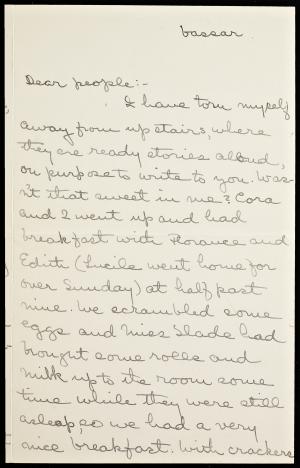 bassar
Dear people:-
I have torn myself
away from up stairs, where
they are ready stories aloud,
on purpose to write to you. Was-
n't that sweet in me? Cora
and I went up and had
breakfast with Florance and
Edith (Lucile went home for
over Sunday) at half past
nine. We scrambled some
eggs and Miss Slade had
brought some rolls and
milk up to its room some
time while they were still
asleep, so we had a very
nice breakfast. With crackers